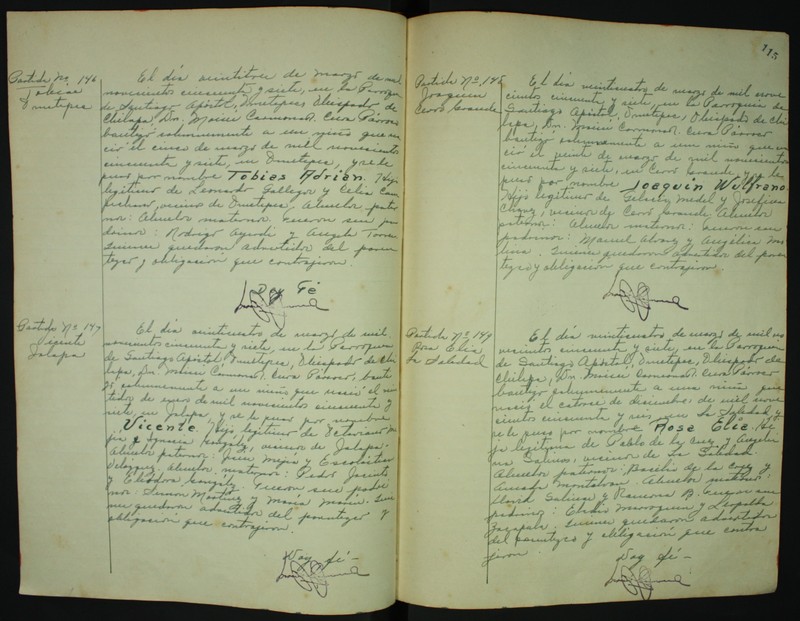 Partida Nº 146
Tobias
Ometepec
El día veintitres de marzo de mil
novecientos cincuenta y siete, en la Parroquia
de Santiago Apóstol, Ometepec, Obispado de
Chilapa, Dn. Moisés Carmona R. Cura Párroco
bautizó solemnemente a un niño que na
ció el cinco de marzo de mil novecientos
cincuenta y siete, en Ometepec, y se le
puso por nombre Tobias Adrián. Hijo
legítimo de Leonardo Gallegos y Celia
vecinos de Ometepec. Abuelos pater
nos: Abuelos maternos: Fueron sus pa
drinos: Rodrigo y Angela Torres
quienes quedaron advertidos del paren
tezco y obligación que contrajeron.
Doy Fé
Partida Nº 147
Vicente
Jalapa
El día veinticuatro de marzo de mil
novecientos cincuenta y siete, en la Parroquia
de Santiago Apóstol Ometepec, Obispado de Chi
lapa, Dn. Moisés Carmona R. Cura Párroco, bauti
zó solemnemente a un niño que nació el
de enero de mil novecientos cincuenta y
siete, en Jalapa, y se le puso por nombre
Vicente. Hijo legítimo de Octaviano
y Ignacia González, vecinos de Jalapa.
Abuelos paternos: Juan Mejía y Escolástica
Velázquez, abuelos maternos: Pedro Jacinto
y Eliodora González. Fueron sus padri
nos: Simon Martínez y María Marín. Quie
nes quedaron advertidos del parentezco y
obligación que contrajeron.
Doy fé -
115
Partida Nº 148
Joaquin
Cerro Grande
El día veinticuatro de marzo de mil nove
cientos cincuenta y siete, en la Parroquia de
Santiago Apóstol, Ometepec, Obispado de Chi
lapa, Dn. Moisés Carmona R. Cura Párroco
bautizó solemnemente a un niño que na
ció el veinte de marzo de mil novecientos
cincuenta y siete, en Cerro Grande y se le
puso por nombre Joaquin Wulfrano.
Hijo legítimo de Medel y Josefina
Chávez, vecinos de Cerro Grande, Abuelos
paternos: Abuelos maternos: Fueron sus
padrinos: Manuel y Angélica
quienes quedaron advertidos del paren
tezco y obligación que contrajeron.
Partida Nº 149
Rosa Elia
La Soledad
El día veinticuatro de marzo de mil no
vecientos cincuenta y siete, en la Parroquia
de Santiago Apóstol, Ometepec, Obispado de
Chilapa, Dn Moisés Carmona R. Cura Párroco
bautizó solemnemente a una niña que
nació el catorce de diciembre de mil nove
cientos cincuenta y seis, en La Soledad, y
se le puso por nombre Rosa Elia. Hi
ja legítima de Pablo de la Cruz y
Salinas, vecinos de La Soledad.
Abuelos paternos: Basilio de la Cruz y
Amada Montalvan. Abuelos maternos:
Salinas y Ramona B. Fueron sus
padrinos: Eladio Marroquin y Leopolda
quienes quedaron advertidos
del parentezco y obligación que contra
jeron
Doy fé -